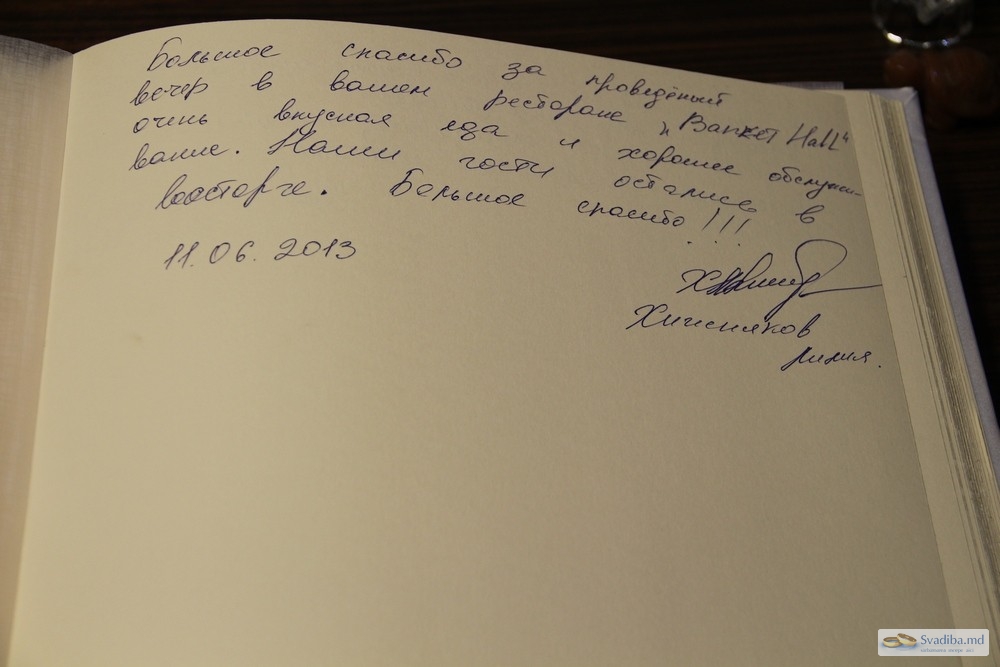 Большое спасибо за проведёный
вечер в вашем ресторане „Banket Hall“
очень вкусная еда и хорошее обслужи-
вание. Наши гости остались в
восторге. Большое спасибо!!!
11.06.2013
Лилия.
Svadiba.md